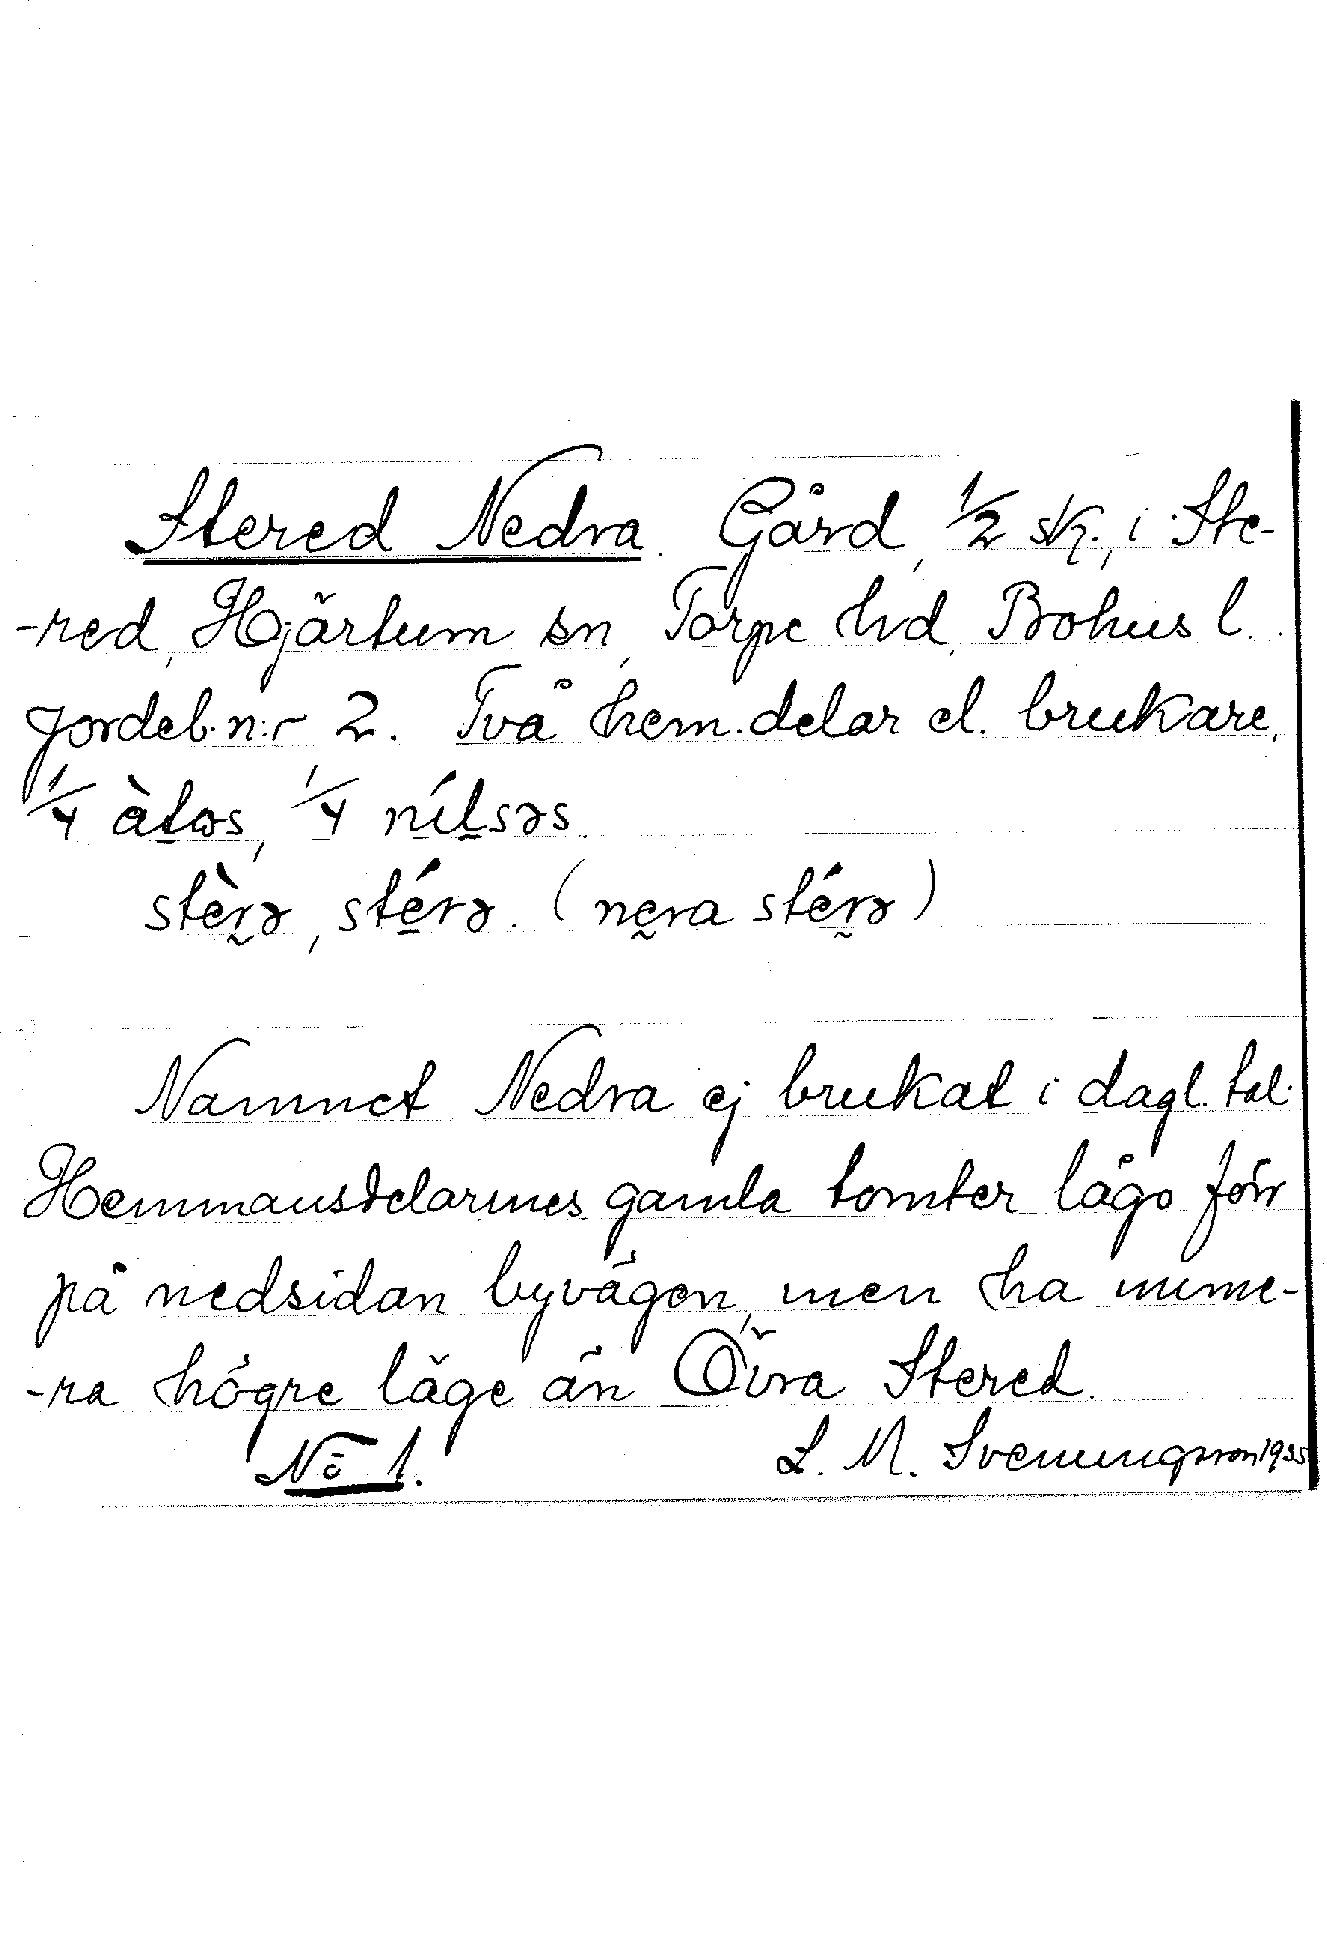 Stered Nedra. Gård, 1/2 sk., i Ste-
-red, Hjärtum sn, Torpe hd, Bohus l.
Jordeb. n:r 2. Två hem.delar el. brukare,
1/4 àtəs, 1/4 nílsəs.
stèrə, stérə. (nera stérə)
Namnet Nedra ej brukat i dagl. tal.
Hemmansdelarnes gamla tomter lågo förr
på nedsidan byvägen, men ha nume-
-ra högre läge än Övra Stered.
No 1. L. M. Svenungsson 1935